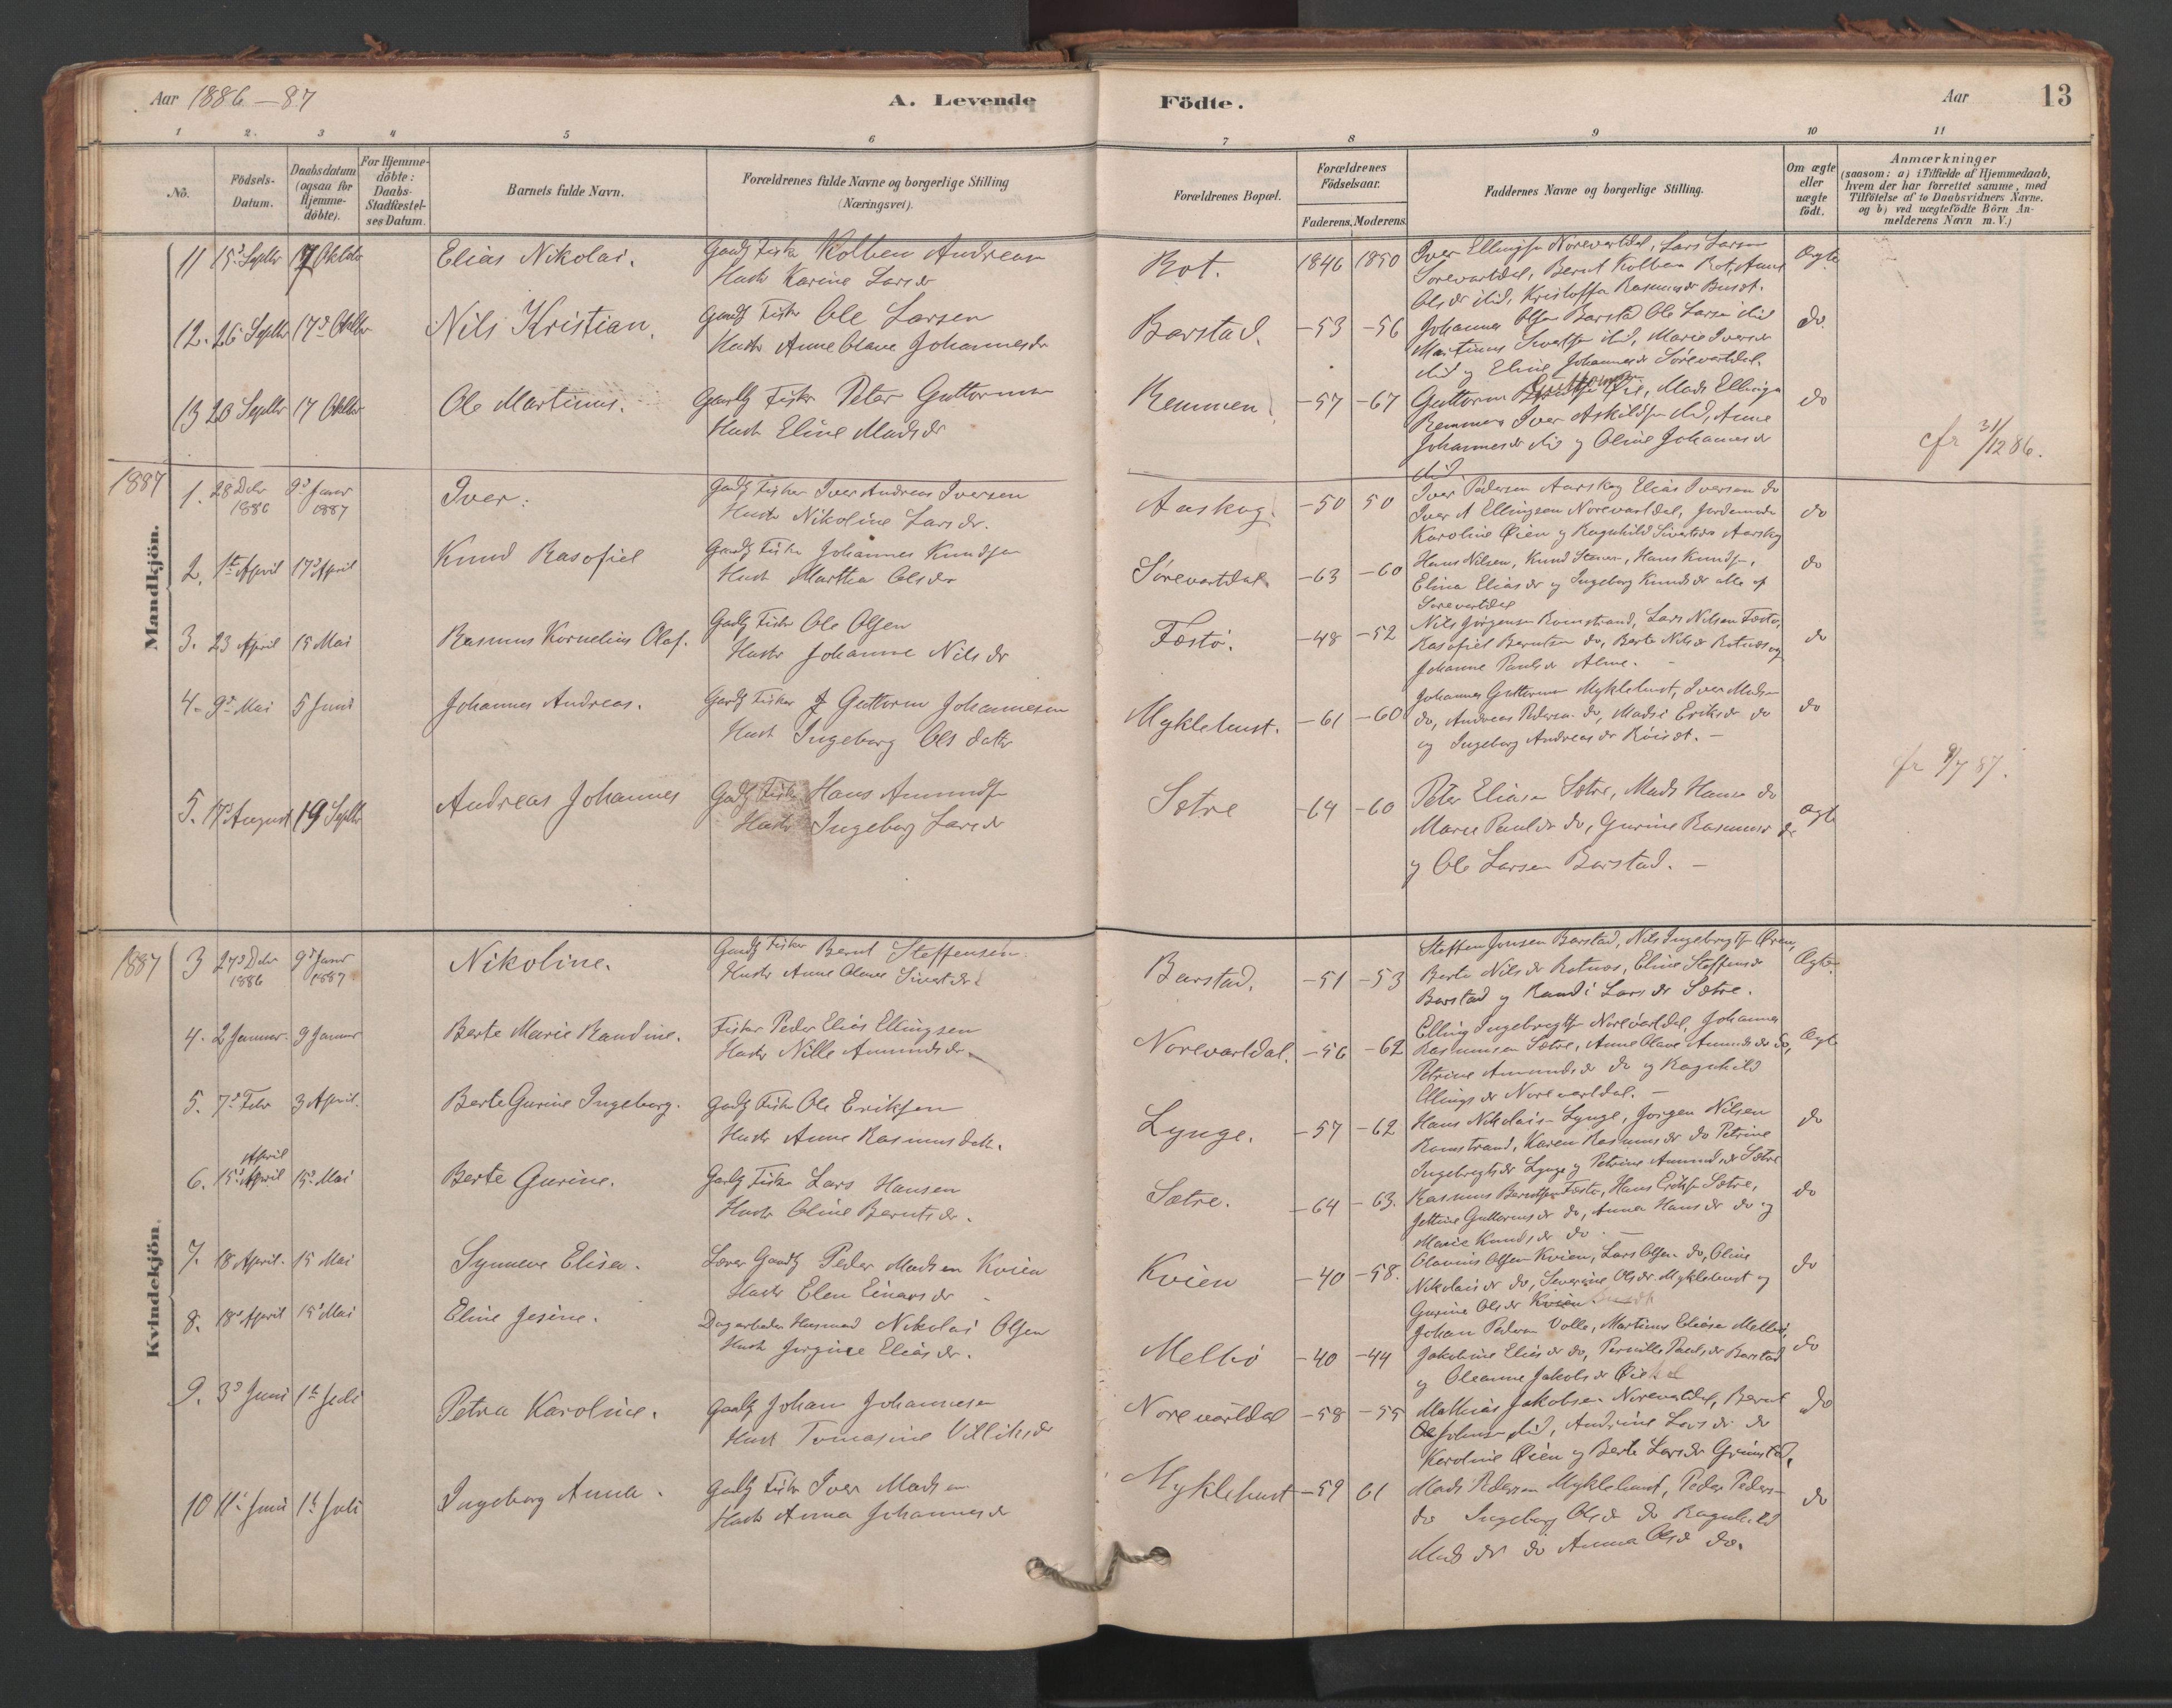 Aar 1886-87
A. Levende
Födte.
Aar
13
1
2.
3
4
5
6
7
8
9
10
11
Nö.
Födsels-Datum.
Daabsdatum (ogsaa för Hjemme-döbte).
For Hjemme-döbte: Daabs-Stadfæstel-ses Datum.
Barnets fulde Navn.
Forældrenes fulde Navne og borgerlige Stilling (Næringsvei).
Forældrenes Bopæl.
Forældrenes Födselsaar.
Faderens.
Moderens.
Faddernes Navne og borgerlige Stilling.
Om ægte eller uægte födt.
Anmærkninger
(saasom: a) i Tilfælde af Hjemmedaab,
hvem der har forrettet samme, med
Tilföielse af to Daabsvidners Navne.
og b) ved uægtefödte Börn An-
melderens Navn m.V.)
Mandkjön.
11 15d Septbr 17 Oktbr
Elias Nikolai.
Gaardb Fisker Kolben Andreasen
Hustr Karine Larsdr
Rot.
1846 1850
Iver Ellingsen Norevartdal, Lars Larsen
Sørevartdal, Bernt Kolbens Rot, Anne
Olsdr ibid, Kristoffa Rasmusdr
Ægte
12. 26 Septbr 17d Oktbr
Nils Kristian.
Gaardb Fisker Ole Larsen
Hustr Anne Olave Johannesdr
Barstad.
-53 -56
Johannes Olsen Barstad Ole Larsen ibid
Martinus Sivertsen ibid, Marie Iversdr
ibid og Eline Johannesdr Sørevartdal.
do.
13 20 Septbr 17 Oktbr
Ole Martinus.
Gaardb Fisker Peter Guttormsen
Hustr Eline Madsdr
Remmen
-57 -67
Guttorm Øie, Mads Ellingsen
Remmen Iver Askildsen ibid, Anne
Johannesdr ibid og Oline Johannesdr
ibid
do
cfr 31/12 86.
1887
1. 28 Debr 1886 9d Januar 1887
Iver.
Gaardb Fisker Iver Andreas Iversen
Hustr Nikoline Larsdr.
Aaskog.
-50 50
Iver Pedersen Aarskog Elias Iversen do
Iver A Ellingsen Norevartdal, Jordemoder
Karoline Øien og Ragnhild Sivertsdr Aarskog
do
2. 1ste April 17d April
Knud Rasofiel
Gaardb Fisker Johannes Knudsen
Hustr Martha Olsdr
Sørevartdal
-63 -60
Hans Nilsen, Knud , Hans Knudsen,
Elina Eliasdr og Ingeborg Knudsdr alle af
Sørevartdal
do
3. 23 April 15 Mai
Rasmus Kornelius Olaf.
Gaardb Fisker Ole Olsen
Hustr Johanne Nilsdr
Festø.
-48 -52
Nils Jørgensen Romstrand, Lars Nilsen Festø,
Rasofiel Berntsen do, Berte Nilsdr Rotnes og
Johanne Paulsdr Alme.
do
4. 9d Mai 5 Juni
Johannes Andreas.
Gaardb Fisker Guttorm Johannesen
Hustr Ingeborg Olsdatter
Myklebust.
-61 -60
Johannes Guttormsen Myklebust, Iver Madsen
do, Andreas Pedersen do, Madsi Eriksdr do
og Ingeborg Andreasdr
do
5. 17d August 19 Septbr
Andreas Johannes
Gaardb Fisker Hans Amundsen
Hustr Ingeborg Larsdr
Sætre
-64 -60
Peter Eliasen Sætre, Mads Hansen do
Marie Paulsdr do, Gurine Rasmusdr do
og Ole Larsen Barstad.
ægte
fr 9/7 87.
Kvindekjön.
1887
3 27d Debr 1886 9d Januar 1887
Nikoline.
Gaardb Fisker Bernt Steffensen
Hustr Anne Olave Sivertsdr
Barstad.
-51 -53
Steffen Jonsen Barstad, Nils Ingebrigtsen Øien,
Berte Nilsdr Rotnes, Eline Steffensdr
Barstad og Randi Larsdr Sætre.
Ægte
4. 2 Januar. 9 Januar
Berte Marie Randine.
Fisker Peder Elias Ellingsen
Hustr Nille Amundsdr.
Norevartdal.
-56 -62
Elling Ingebrigtsen Norevartdal, Johannes
Rasmussen Sætre, Anne Olave Amundsdr do,
Petrine Amundsdr do og Ragnhild
Ellingsdr Norevartdal.
Ægte
5. 7d Febr 3 April.
Berte Gurine Ingeborg.
Gaardb Fisker Ole Eriksen
Hustr Anne Rasmusdatter.
Lynge.
-57 -62
Hans Nikolaisen Lynge, Jørgen Nilsen
Romstrand, Karen Rasmusdr do Petrine
Ingebrigtsdr Lynge og Petrine Amundsdr Sætre
do
April
6. 15d April 15d Mai
Berte Gurine.
Gaardb Fisker Lars Hansen
Hustr Oline Berntsdr.
Sætre.
-64 -63.
Rasmus Berntsen Festø, Hans Eriksen Sætre,
Jettine Guttormsdr do, Anna Hansdr do og
Marie Knudsdr do.
do
7. 18 April. 15 Mai
Synneve Elisa.
Lærer Gaardb Peder Madsen Kvien
Hustr Elen Einarsdr
Kvien
-40 -58.
Olavius Olsen Kvien, Lars Olsen do, Oline
Nikolaisdr do, Severine Olsdr Myklebust og
Gurine Olsdr Kvien
do
8. 18d April 15d Mai
Eline Jesine.
Dagarbeider Husmand Nikolai Olsen
Hustr Jørgine Eliasdr.
Melbø
-40 -44
Johan Pedersen Volle, Martinus Eliasen Melbø,
Jakobine Eliasdr do, Pernille Paulsdr Barstad
og Oleanne Jakobsdr
do
9. 3d Juni 1ste Juli
Petra Karoline.
Gaardb Johan Johannesen
Hustr Tomasine Villiksdr
Norevartdal
-58 -55
Mathias Jakobsen Norevartdal, Bernt
ibid, Andrine Larsdr do
Karoline Øien og Berte Larsdr Grimstad,
do
10 11te Juni 1ste Juli
Ingeborg Anna.
Gaardb Fisker Iver Madsen
Hustr Anna Johannesdr
Myklebust
-59 61
Mads Pedersen Myklebust, Peder Pedersen
do Ingeborg Olsdr do Ragnhild
Madsdr do Anna Olsdr do.
do